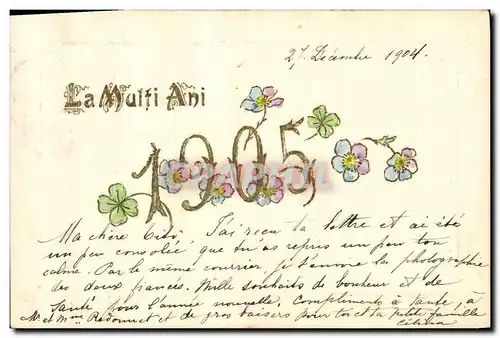 27 Décembre 1904.
La Mulți Ani
1905
Ma chère J'ai reçu ta lettre et ai été
un peu consolée que tu as repris un peu ton
calme. Par le même courrier je t'envoie la photographie
des deux fiancés. Mille souhaits de bonheur et de
Santé pour l'année nouvelle. Compliments à Tante, à
Mr et Mme et de gros baisers pour toi et ta petite famille
Célina